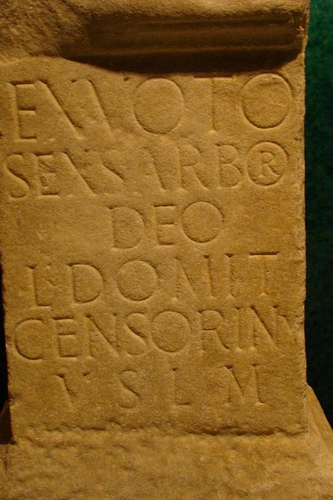 EXVOTO
SEXSARB®
DEO
L·DOMIT
CENSORINV
V S L M